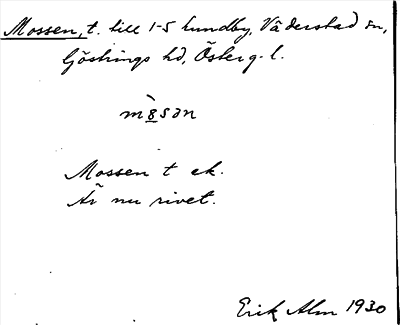 Mossen, t. till 1-5 Lundby, Väderstad sn,
Göstrings hd, Österg. l.
mò̱san
Mossen t ek.
Är nu rivet.
Erik Alm 1930